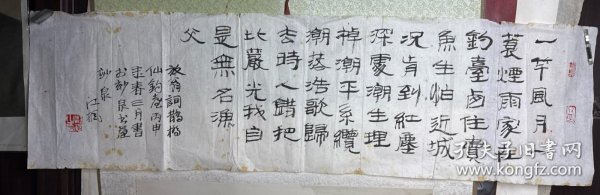 一竿風月一
蓑煙雨家在
釣臺西住賣
魚生怕近城
況肯到紅塵
深處潮生理
棹潮平系纜
潮落浩歌歸
去時人錯把
比嚴光我自
是無名漁
父
放翁詞鵲橋
仙 丙申
春三月書
妙泉
孔夫子旧书网
kongfz.com